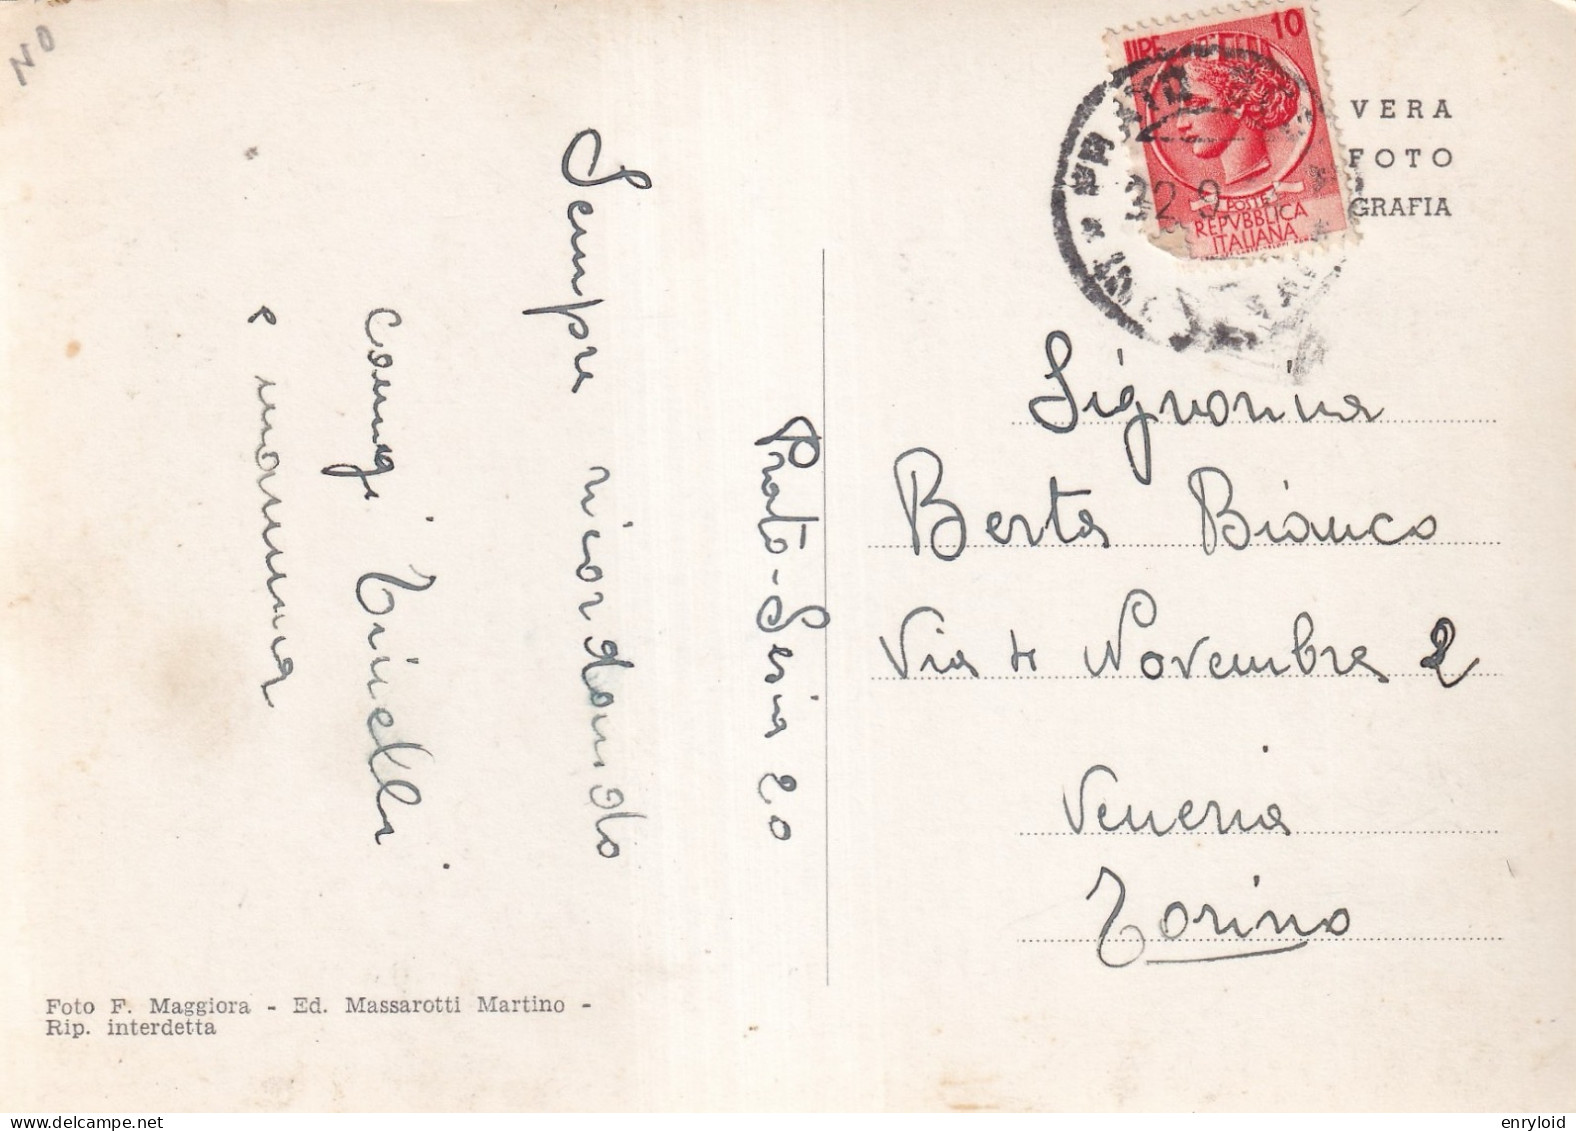 NO
10
LIRE
POSTE
REPVBBLICA
ITALIANA
VERA
FOTO
GRAFIA
Prato-Sesia 20
Sempre ricordando
coniugi Trinelli
e mamma
Signorina
Berta Bianco
Via 4 Novembre 2
Veneria
Torino
Foto F. Maggiora - Ed. Massarotti Martino -
Rip. interdetta
enryloid